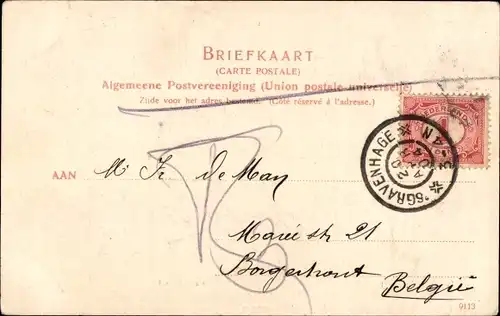 BRIEFKAART
(CARTE POSTALE)
Algemeene Postvereeniging (Union postale universelle)
Zijde voor het adres bestemd. (Côté réservé à l'adresse.)
NEDERLAND
'SGRAVENHAGE
AAN
Mr Fr de Man
21
Borgerhout
België
9113